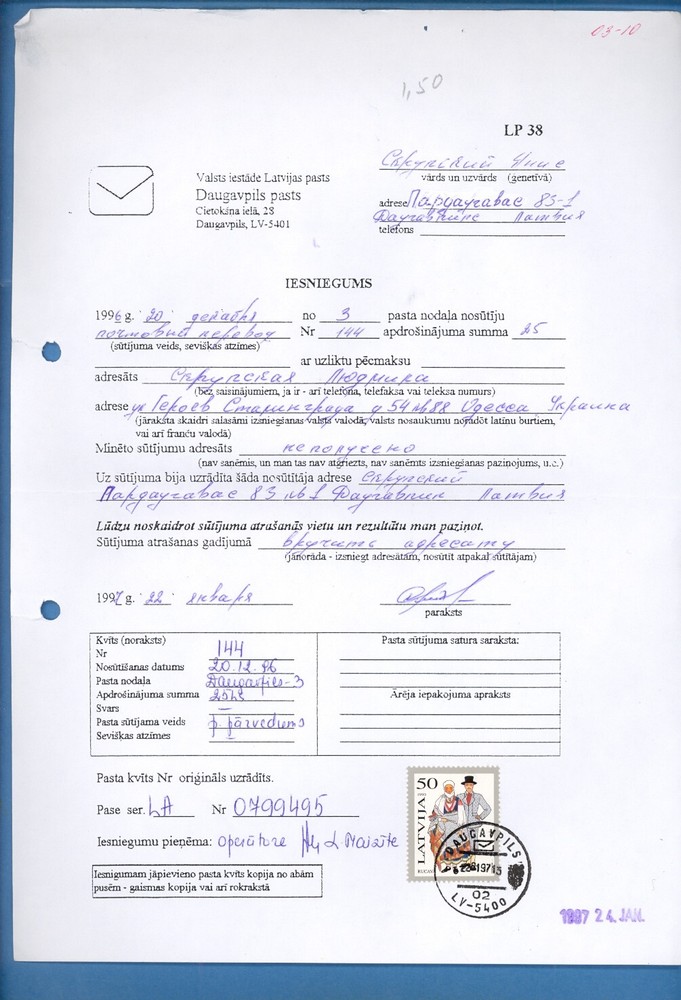 03-10
1,50
LP 38
Скрупский Янис
vārds un uzvārds (ģenetīvā)
Valsts iestāde Latvijas pasts
Daugavpils pasts
Cietokšņa ielā, 28
Daugavpils, LV-5401
adrese Пардаугавас 83-1
Даугавпилс Латвия
telefons
IESNIEGUMS
1996 g. 20 декабря no 3 pasta nodaļa nosūtīju
почтовый перевод Nr 144 apdrošinājuma summa 25
(sūtījuma veids, sevišķas atzīmes)
ar uzliktu pēcmaksu
adresāts Скрупская Людмила
(bez saīsinājumiem, ja ir - arī telefona, telefaksa vai teleksa numurs)
adrese ул Героев Сталинграда д 54 кв 88 Одесса Украина
(jāraksta skaidri salasāmi izsniegšanas valsts valodā, valsts nosaukumu norādot latīņu burtiem,
vai arī franču valodā)
Minēto sūtījumu adresāts не получено
(nav saņēmis, un man tas nav atgriezts, nav saņēmts izsniegšanas paziņojums, u.c.)
Uz sūtījuma bija uzrādīta šāda nosūtītāja adrese Скрупский
Пардаугавас 83 кв 1 Даугавпилс Латвия
Lūdzu noskaidrot sūtījuma atrašanās vietu un rezultātu man paziņot.
Sūtījuma atrašanas gadījumā вручить адресату
(jānorāda - izsniegt adresātam, nosūtīt atpakaļ sūtītājam)
1997 g. 22 января
paraksts
Kvīts (noraksts)
Nr 144
Nosūtīšanas datums 20.12.96
Pasta nodaļa Daugavpils-3
Apdrošinājuma summa 25 Ls
Svars —
Pasta sūtījuma veids p. pārvedums
Sevišķas atzīmes —
Pasta sūtījuma satura saraksts:
Ārēja iepakojuma apraksts
Pasta kvīts Nr oriģināls uzrādīts.
Pase ser. LA Nr 0799495
Iesniegumu pieņēma: operatore
Iesnigumam jāpievieno pasta kvīts kopija no abām
pusēm - gaismas kopija vai arī rokrakstā
50
LATVIJA
DAUGAVPILS
02
LV-5400
1997 24. JAN.